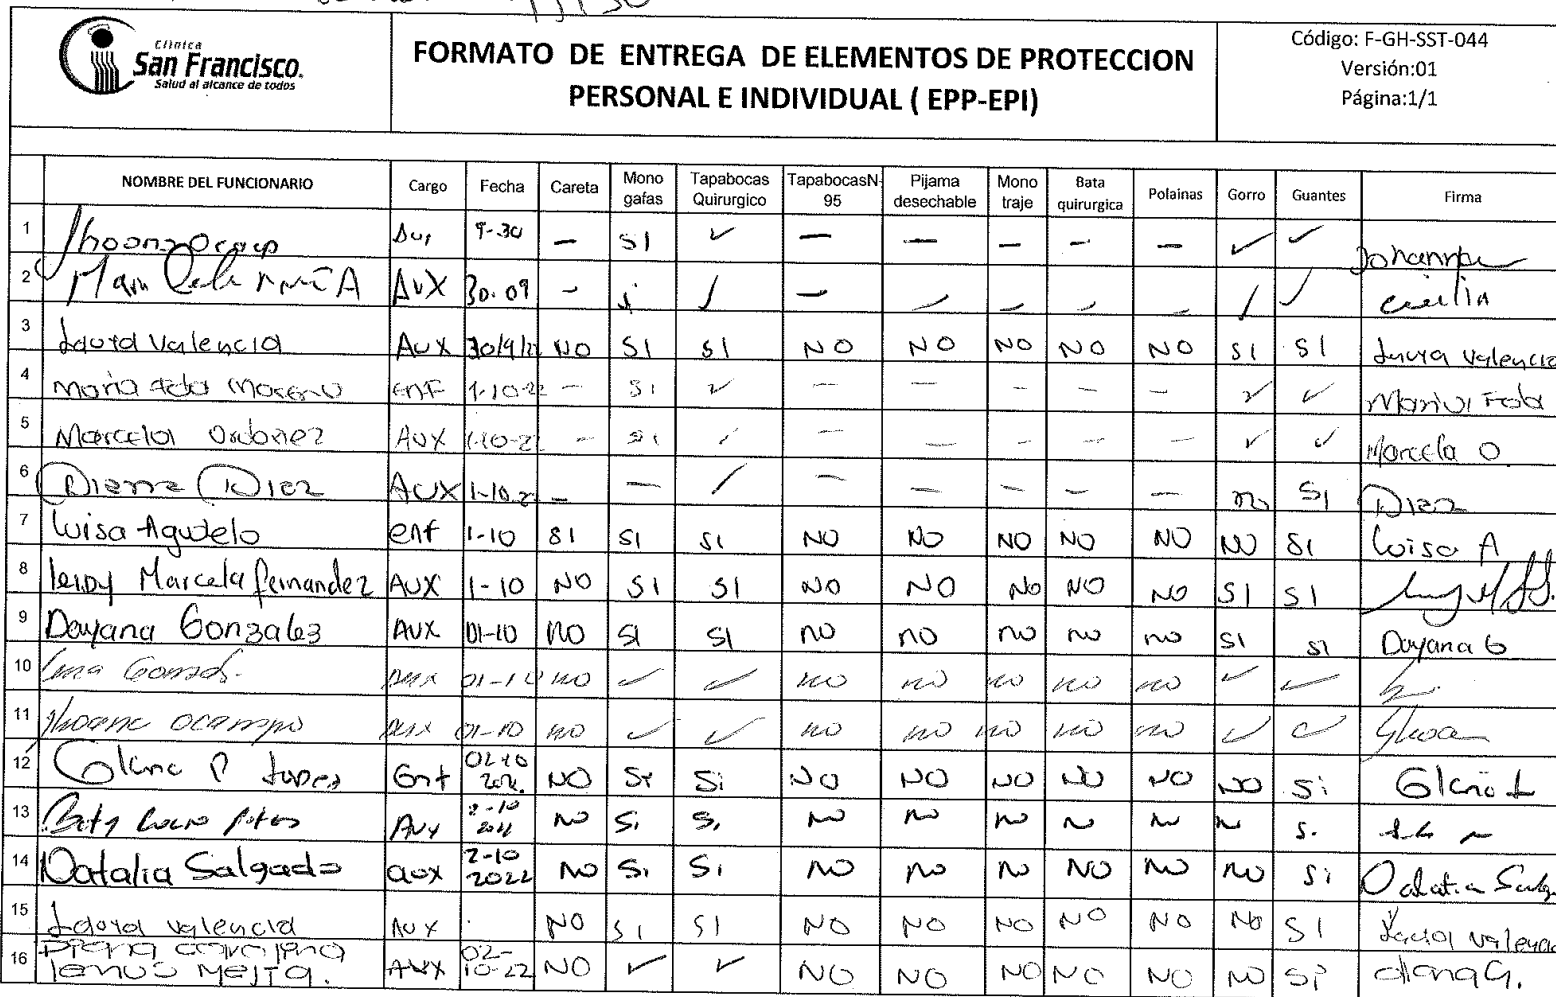 Clínica
San Francisco.
Salud al alcance de todos
FORMATO DE ENTREGA DE ELEMENTOS DE PROTECCION
PERSONAL E INDIVIDUAL ( EPP-EPI)
Código: F-GH-SST-044
Versión:01
Página:1/1
NOMBRE DEL FUNCIONARIO Cargo Fecha Careta Mono gafas Tapabocas Quirurgico TapabocasN-95 Pijama desechable Mono traje Bata quirurgica Polainas Gorro Guantes Firma
1 Aux 9-30 — SI ✓ — — — — — ✓ ✓ Johanna
2 AUX 30-09 - ✓ — - - - - ✓ ✓ cecilia
3 Laura Valencia AUX 30/9/22 NO SI SI NO NO NO NO NO SI SI Laura Valencia
4 Maria Moreno enf 1-10-22 — SI ✓ — — - - — ✓ ✓
5 Marcela Ordoñez AUX 1-10-22 - SI ✓ — — - - - ✓ ✓ Marcela O
6 Diana Diez AUX 1-10-22 — — ✓ — — — — — no SI Diez
7 Luisa Agudelo enf 1-10 SI SI SI NO NO NO NO NO NO SI Luisa A
8 leidy Marcela fernandez AUX 1-10 NO SI SI NO NO NO NO NO SI SI
9 Dayana Gonzalez AUX 01-10 NO SI SI NO NO NO NO NO SI SI Dayana G
10 aux 01-10 no ✓ ✓ no no no no no ✓ ✓
11 Jhoana ocampo aux 01-10 no ✓ ✓ no no no no no ✓ ✓ Jhoa
12 P Lopez Enf 02-10 NO Si Si NO NO NO NO NO NO Si
13 Aux 2-10 NO Si Si NO NO NO N N N S.
14 Natalia Salgado aux 2-10 2022 NO Si Si NO NO NO NO NO NO Si Natalia Salg
15 Laura Valencia AUX NO SI SI NO NO NO NO NO NO SI Laura Valencia
16 Diana carolina lemus Mejia. AUX 02-10-22 NO ✓ ✓ NO NO NO NO NO NO SI diana G.